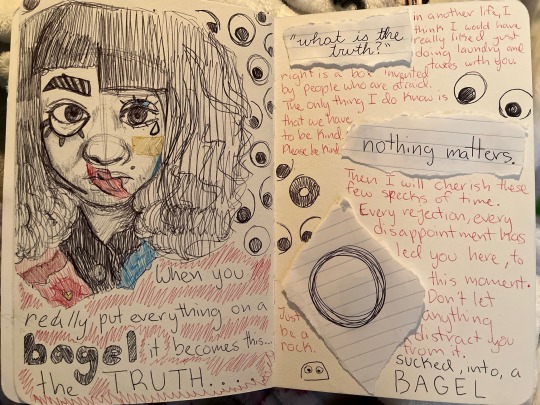 When you
really put everything on a
bagel it becomes this...
the TRUTH....
"what is the
truth?"
in another life, I
think I would have
really liked just
doing laundry and
taxes with you
right is a box invented
by people who are afraid.
The only thing I do know is
that we have
to be kind
Please be kind
nothing matters.
Then I will cherish these
few specks of time.
Every rejection, every
disappointment has
led you here, to
this moment.
Don't let
anything
distract you
from it.
Just
be a
rock.
sucked, into, a
BAGEL